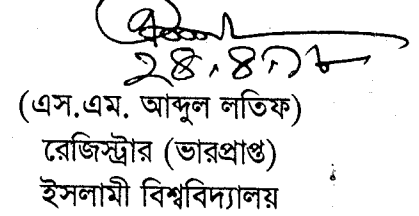 ২৪.৪.১৮
(এস.এম. আব্দুল লতিফ)
রেজিস্ট্রার (ভারপ্রাপ্ত)
ইসলামী বিশ্ববিদ্যালয়